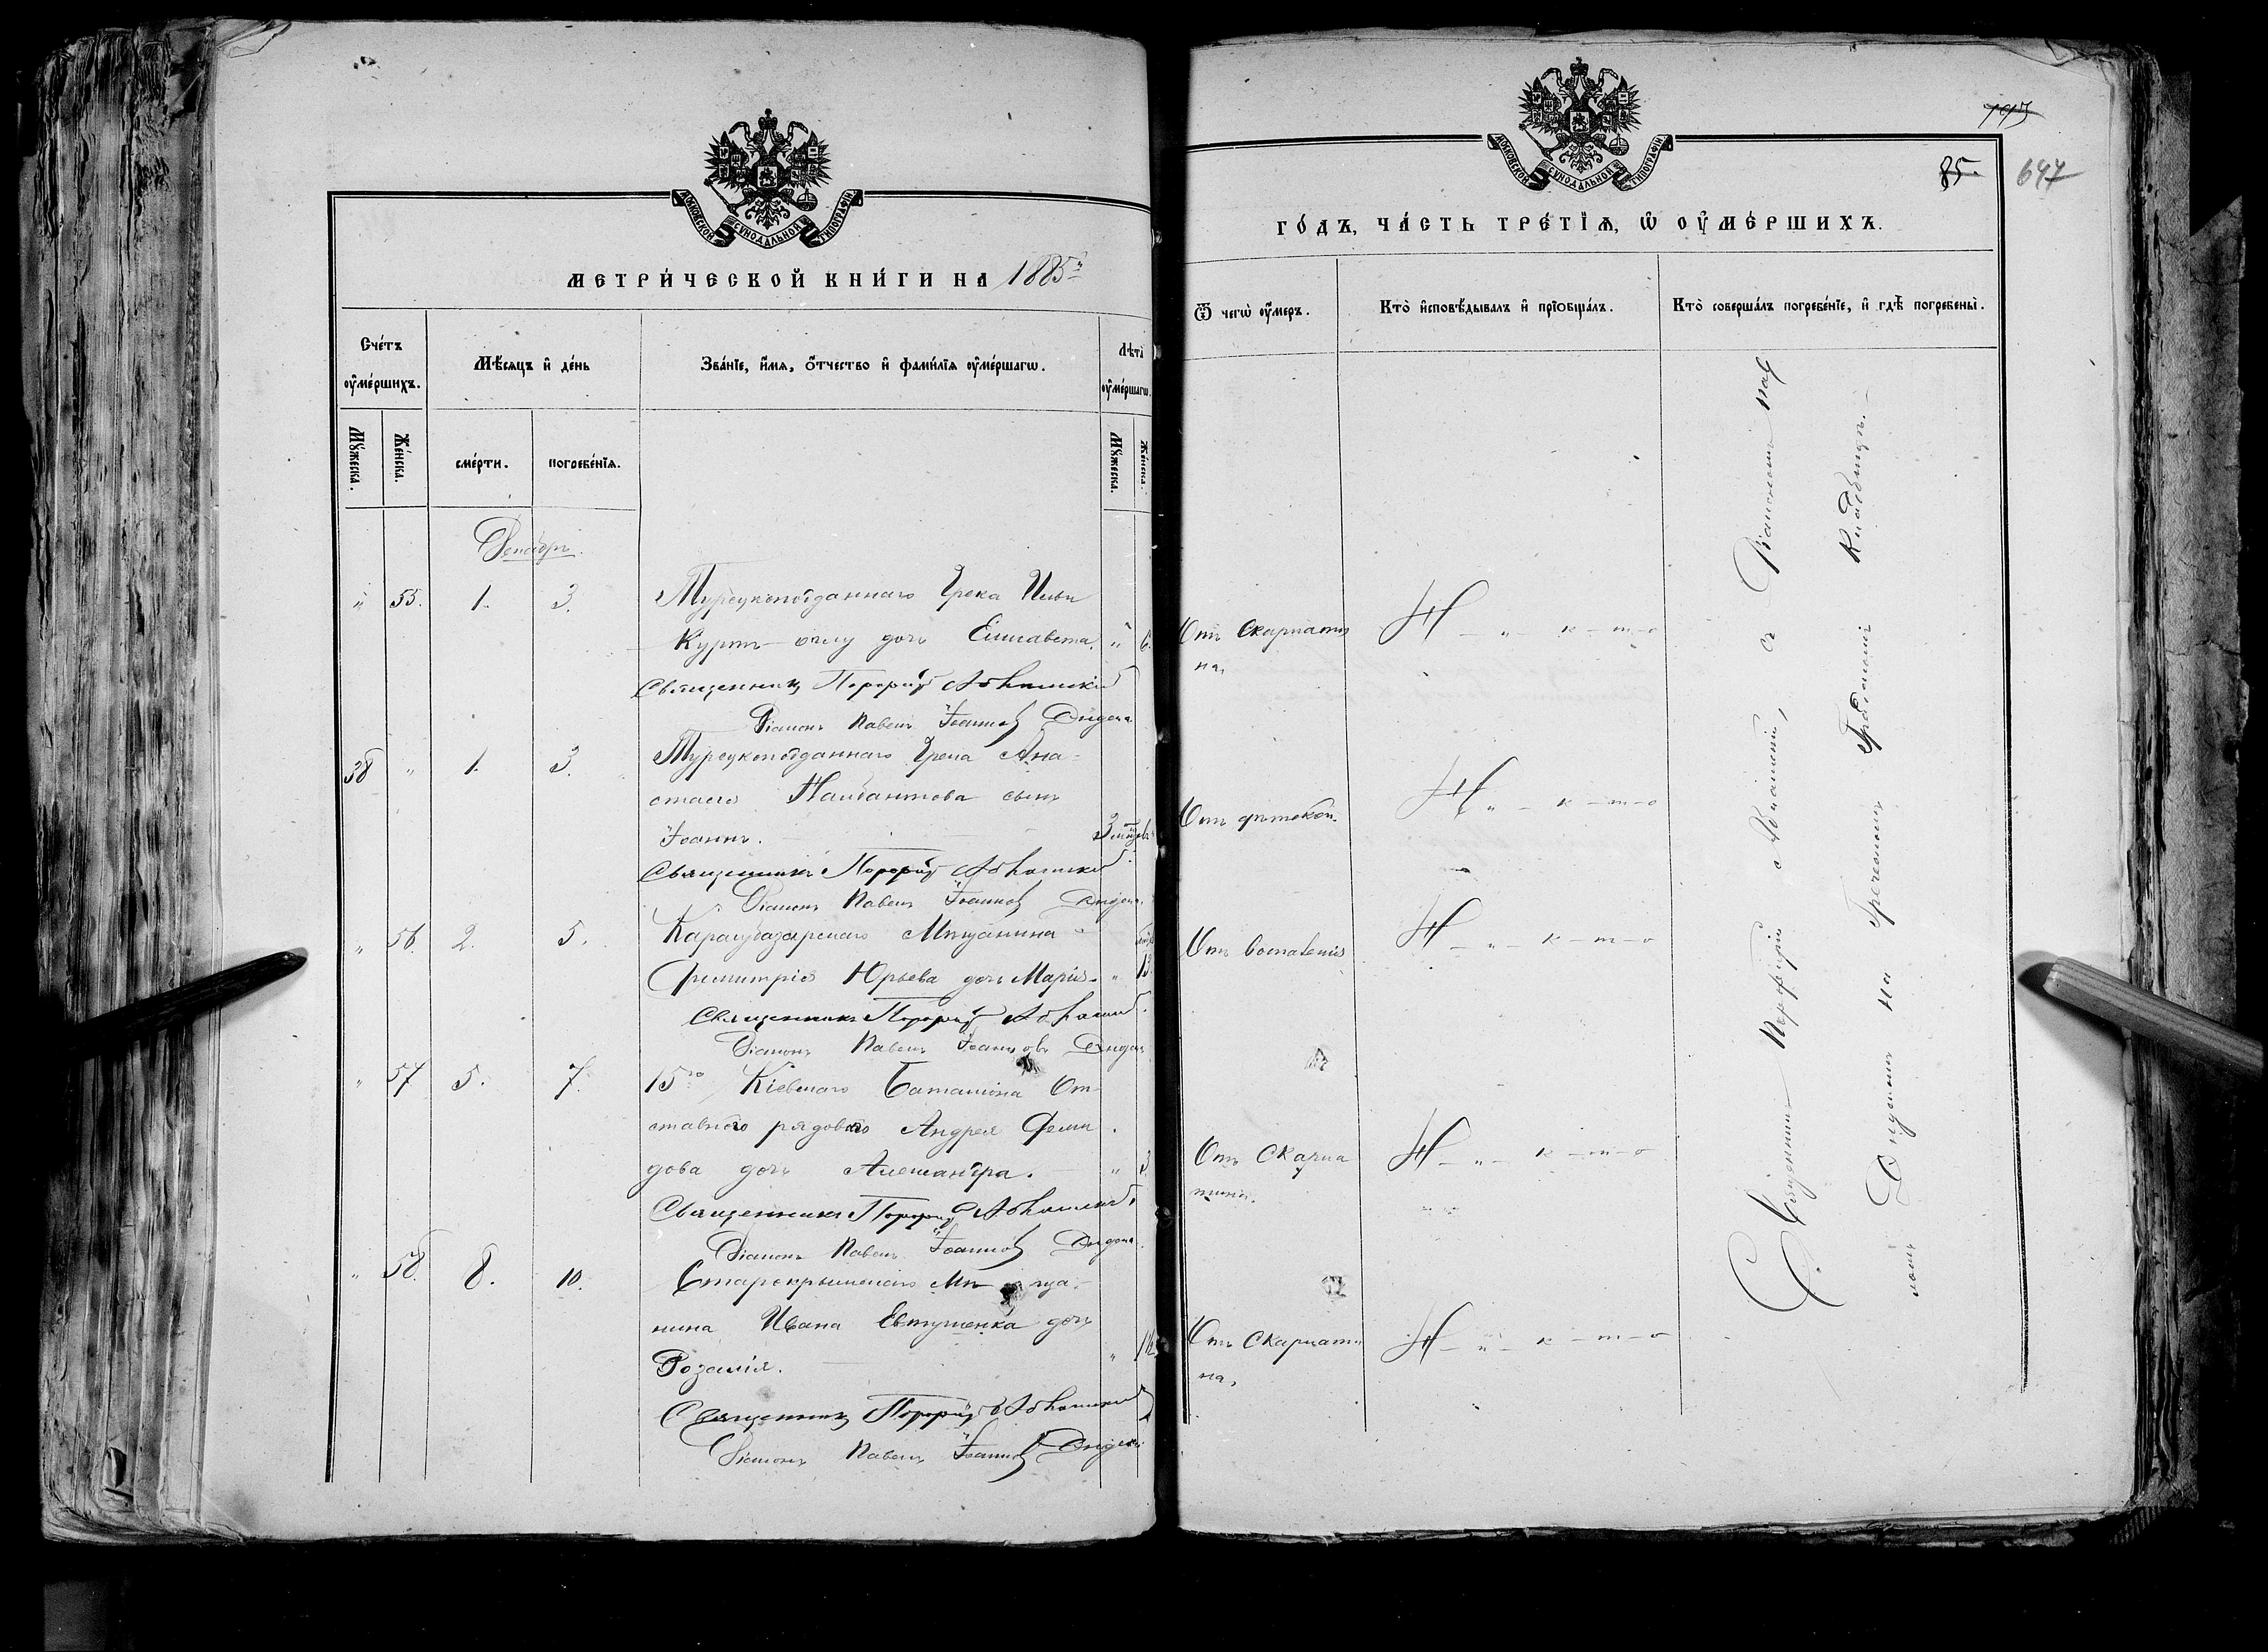 МОСКОВСКОЙ СѴНОДАЛЬНОЙ ТИПОГРАФІИ
МЕТРИ́ЧЕСКОЙ КНИ́ГИ НА 1885й
Сче́тъ ᲂу҆ме́ршихъ.
Мѣ́сяцъ и҆ де́нь
Зва́нїе, и҆́мѧ, ѻ҆́тчество и҆ фами́лїѧ ᲂу҆ме́ршагѡ.
Лѣта̀ ᲂу҆ме́ршагѡ.
Мꙋ́жеска.
Же́нска.
сме́рти.
погребе́нїѧ.
Мꙋ́жеска.
Же́нска.
Декабрь.
" 55. 1. 3. Турецкоподданнаго Грека Ильи
Курт-оглу дочь Елисавета. " 6.
Священникъ Порфирій
Діаконъ Павелъ Іоанновъ
38 " 1. 3. Турецкоподданнаго Грека Ана-
стаса сынъ
Іоаннъ. 3
Священникъ Порфирій
Діаконъ Павелъ Іоанновъ
" 56. 2. 5. Карасубазарскаго Мѣщанина
Димитрія Юрьева дочь Марія. " 13.
Священникъ Порфирій
Діаконъ Павелъ Іоанновъ
" 57 5. 7. 15го Кіевскаго Баталіона От-
ставного рядового Андрея Деми
дова дочь Александра. " 3.
Священникъ Порфирій
Діаконъ Павелъ Іоанновъ
" 58. 8. 10. Старокрымскаго Мѣ ща-
нина Ивана Евтушенка дочь
Розалія. "
Священникъ Порфирій
Діаконъ Павелъ Іоанновъ
МОСКОВСКОЙ СѴНОДАЛЬНОЙ ТИПОГРАФІИ
85.
647
ГО́ДЪ, ЧА́СТЬ ТРЕ́ТЇѦ, Ѡ҆ ОУ҆МЕ́РШИХЪ.
Ѿ чегѡ̀ ᲂу҆́меръ.
Кто̀ и҆сповѣ́дывалъ и҆ прїобща́лъ.
Кто̀ соверша́лъ погребе́нїе, и҆ гдѣ̀ погребены̀.
Отъ Скарлати
на.
Н - и - к - т - о
Отъ
Н и - к - т - о
Отъ Воспаленія
Н - и - к - т - о
Отъ Скарла
тина.
Н - и - к - т - о
Отъ Скарлати
на.
Н - и - к - т - о
Священникъ Порфирій съ Діакономъ Пав
ломъ на Греческомъ Градскомъ Кладбищѣ.